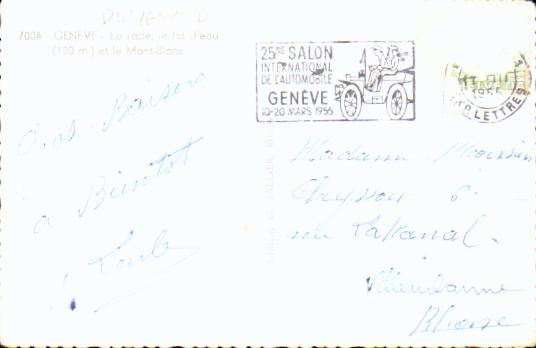 7004 GENÈVE - La rade, le jet d'eau
(120 m.) et le Mont-Blanc
25me SALON
INTERNATIONAL
DE L'AUTOMOBILE
GENÈVE
10-20 MARS 1955
1955
LETTRES
Gros Baisers
a Bientot
Madame Monsieur
6
rue Lakanal.
Villeurbanne
Rhone